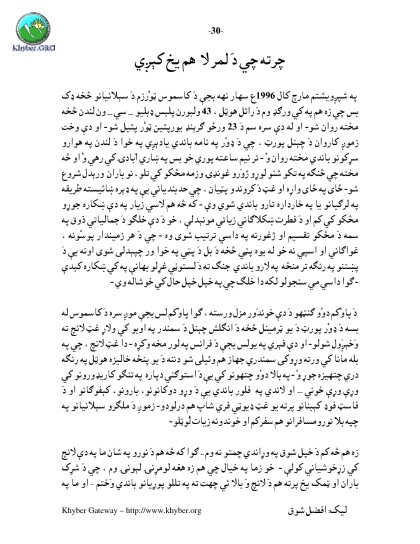 -30-
Khyber.ORG
چرته چې دَ لمر لا هم يخ کېږي
په شپږويشتم مارچ کال 1996ع سهار تهه بجې دَ کاسموس ټوْرزم دَ سېلانيانو څخه ډک
بس چې زه هم په کې ورګډ وم دَ رائل هوټل ، 43 ولبورن پلېس ډبليو _ سي _ ون لندن څخه
مخته روان شو- او له دې سره سم دَ 23 ورځو ګرېنډ يورپئين ټوْر پېئيل شو- او دې وخت
زموږ کاروان دَ چېنل پورټ ، چې دَ ډوْور په نامه باندې يادېږي په خوا دَ لندن په هوارو
سړکونو باندې مخته روان وْ - تر نيم ساعته پورې خو بس په ښاري ابادۍ کې رهي وْ او څه
مخته چې څنګه په تکو شنو لوړو ژورو غونډۍ وزمه مځکو کې تلو ، نو باران ورېدل شروع
شو- ځاى په ځاى واړه او غټ دَ کروندو پټيان ، چې حدبندياني يې په ډېره ښائيسته طريقه
په لرګيانو يا په خارداره تارو باندې شوي وې - که څه هم لاسي زيار په دې ښکاره جوړو
مځکو کې کم او دَ فطرت ښکلاګانې زياتې موندېلې ، خو دَ دې خلګو دَ جمالياتي ذوق په
سمه دَ مځکو تقسيم او ژغورنه په داسې ترتيب شوى وه - چې دَ هر زميندار پوسونه ،
غواګاني او اسپې نه خو له يوه پټي څخه دَ بل دَ پټي په خوا ور چپېدلى شوى اونه يې دَ
پښتنو په رنګه تر منځه په لارو باندې جنګ ته دَ لستوڼي غړلو بهانې په کې ښکاره کېدې
-ګوا داسې مې سنجولو لکه دا خلګ چې په خپل خپل حال کې خوشاله وي -
دَ پاوکم دوْو ګنټهو دَ دې خوندَور مزل ورسته ، ګوا پاوکم لس بجې موږ سره دَ کاسموس له
بسه دَ ډوْور پورټ دَ يو ټرمينل څخه دَ انګلش چېنل دَ سمندر په اوبو کې ولاړ غټ لانچ ته
وخېژول شولو- او دې فېري په يولس بجې دَ فرانس په لور مخه وکړه - دا غټ لانچ ، چې په
بله مانا کې ورته وړوکى سمندري جهاز هم وئيلى شو دننه دَ يو پنځه څاليزه هوټل په رنګه
درې چتهيزه جوړ وْ - په بالا دوْو چتهونو کې يې دَ استوګنې دپاره په تنګو کاريډورونو کې
وړې وړې خونې .. او لاندې په فلور باندې يې دَ وړو دوکانونو ، بارونو ، کېفوګانو او دَ
فاسټ فوډ کېبنانو برته يو غټ ډيوټي فري شاپ هم درلودو- زموږ دَ ملګرو سېلانيانو په
چپه بلا نورو مسافرانو هم سفر کم او خوندونه زيات لوټلو -
زه هم څه کم دَ خپل شوق په وړاندې چمتو نه وم.. ګوا که څه هم دَ نورو په شان ما په دې لانچ
کې زړخوشياني کولې - خو زما په خيال چې هم زه هغه لومړنى لېونى وم ، چې دَ شړک
باران او ټمک يخ برته هم دَ لانچ وَ بالا ني چهت ته په تللو پوړيانو باندې وَختم - او ما په
Khyber Gateway – http://www.khyber.org
ليک: افضل شوق